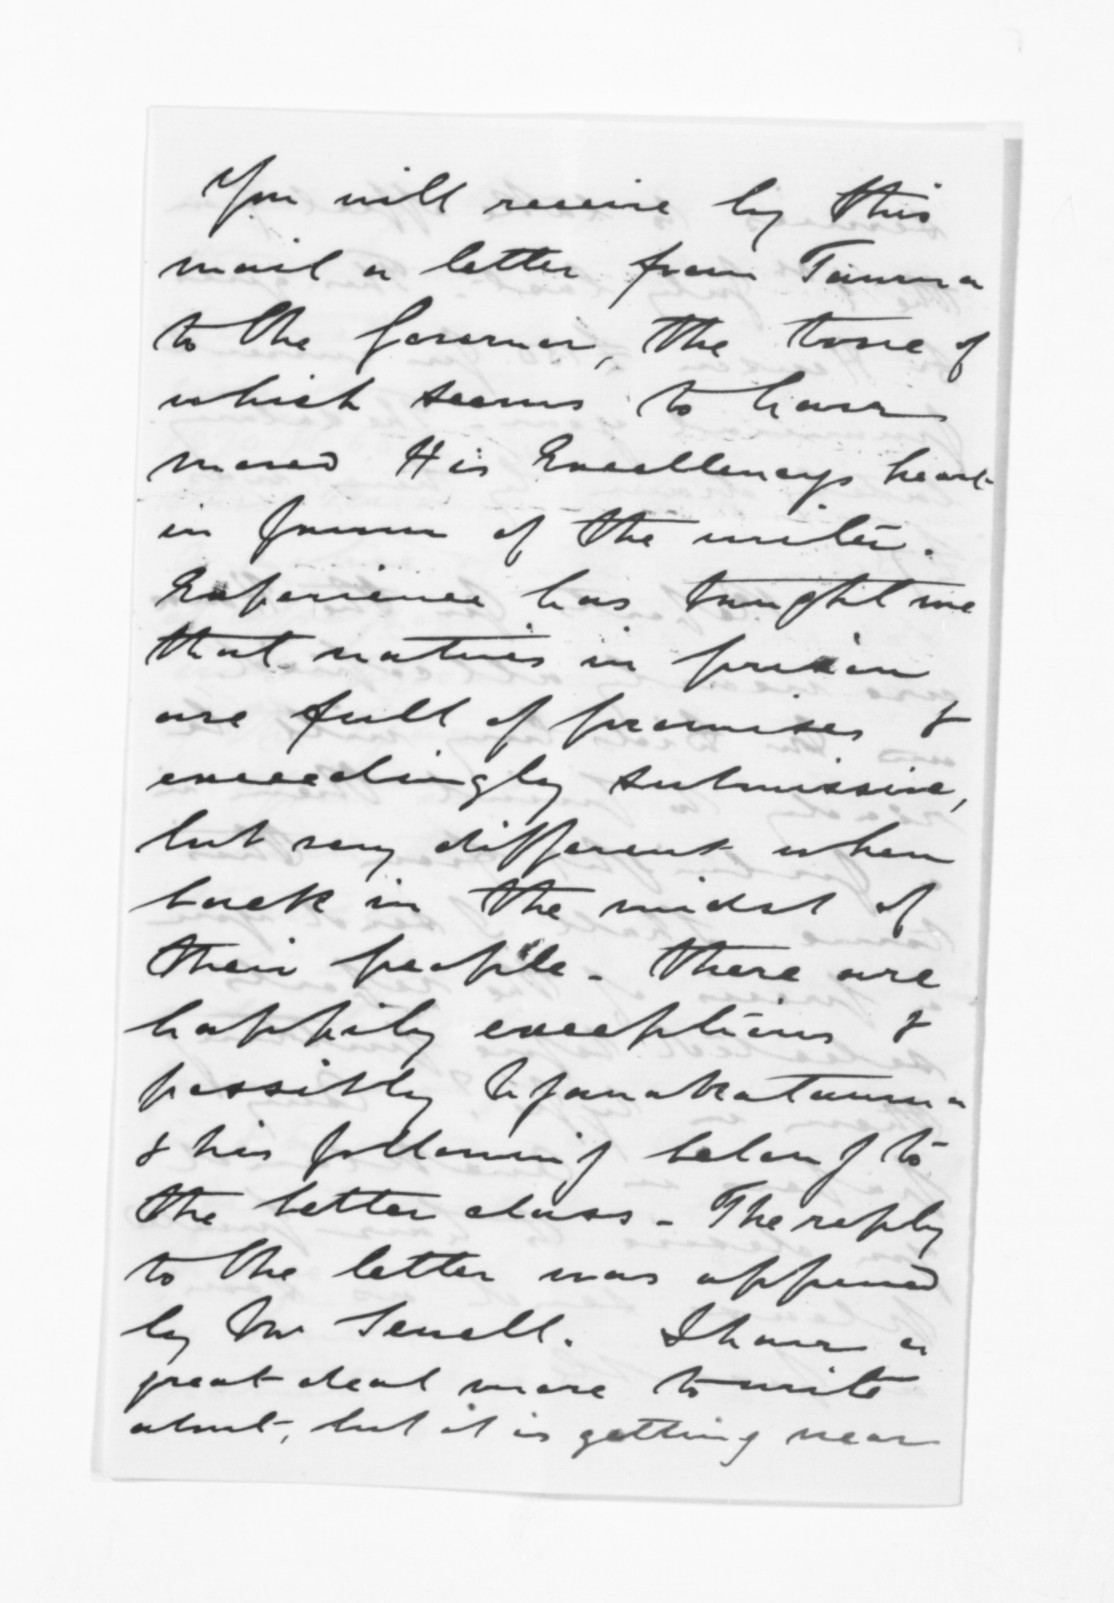 You will receive by this
mail a letter from Tauma
to the Governor, the tone of
which seems to have
moved His Excellencys heart
in favour of the writer.
Experience has taught me
that natives in prison
are full of promises &
exceedingly submissive,
but very different when
back in the midst of
their people - there are
happily exceptions &
possibly
& his following belong to
the better class - The reply
to the letter was approved
by Mr Sewell. I have a
great deal more to write
about, but it is getting near